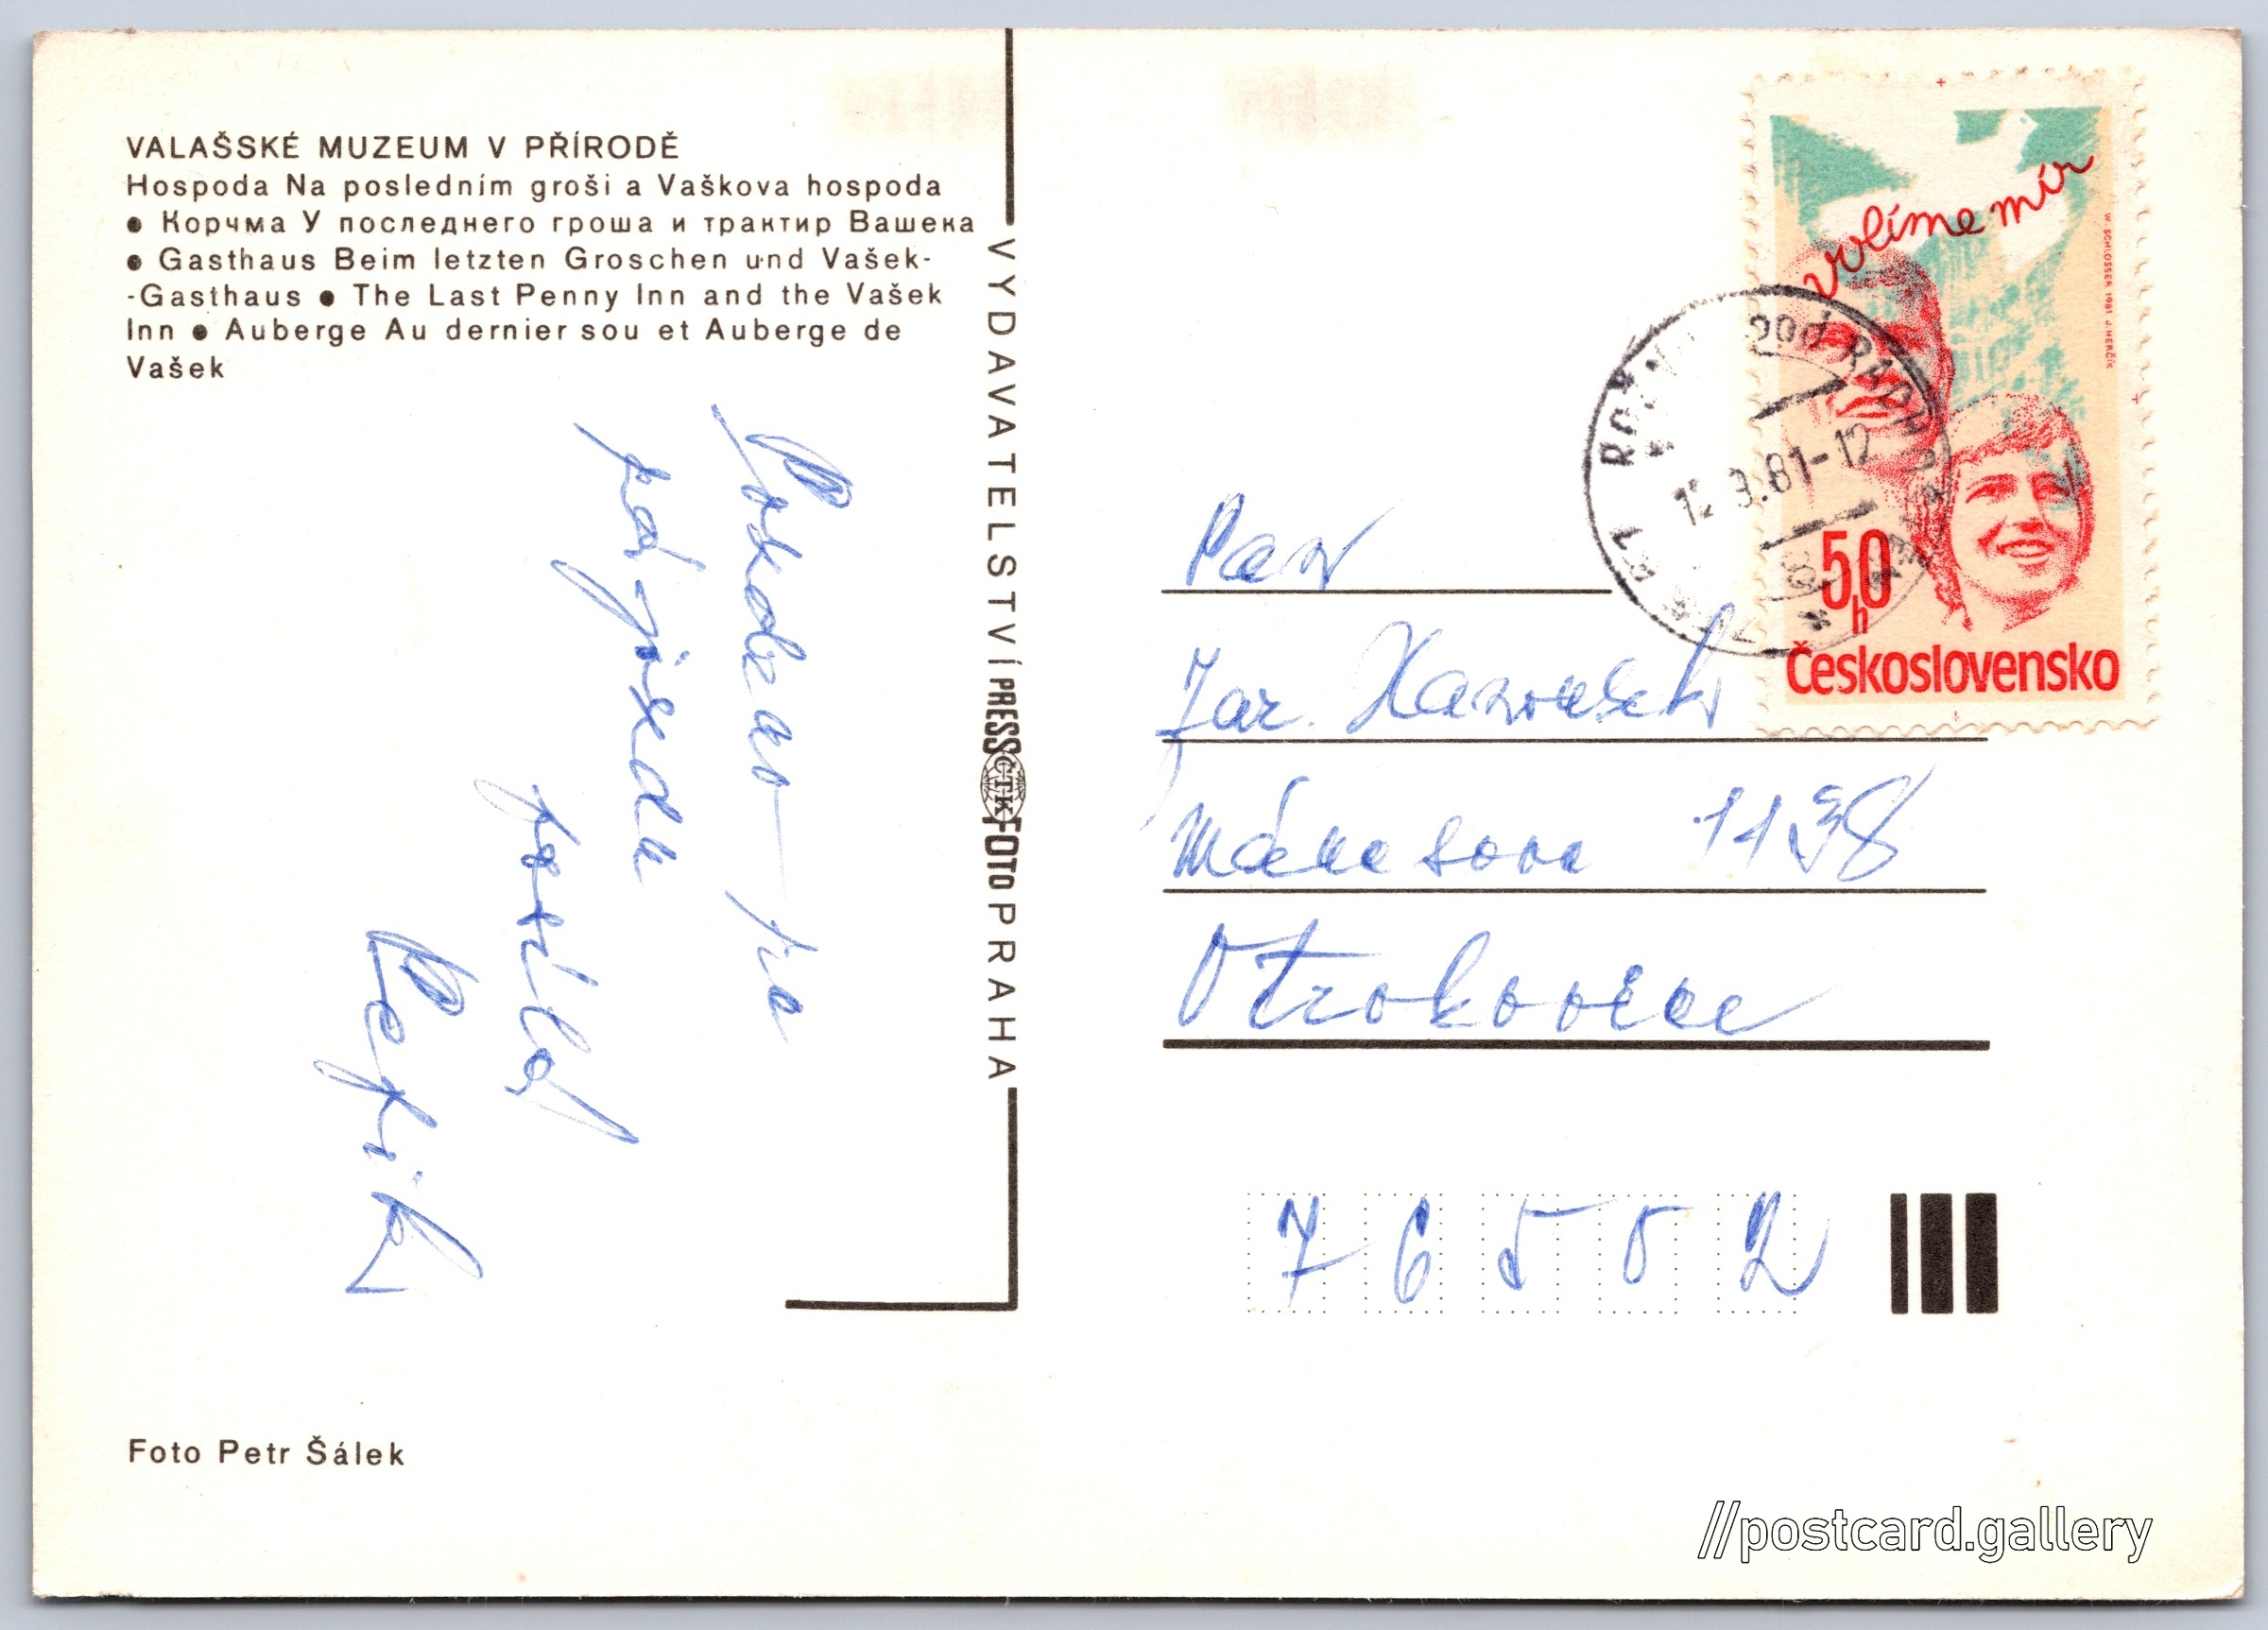 VALAŠSKÉ MUZEUM V PŘÍRODĚ
Hospoda Na posledním groši a Vaškova hospoda
● Корчма У последнего гроша и трактир Вашека
● Gasthaus Beim letzten Groschen und Vašek-
-Gasthaus ● The Last Penny Inn and the Vašek
Inn ● Auberge Au dernier sou et Auberge de
Vašek
Pozdrav
zájezdu
posílá
VYDAVATELSTVÍ PRESSFOTO PRAHA
ČTK
Foto Petr Šálek
volíme mír
W. SCHLOSSER 1981 J. HERČÍK
50
h
Československo
pod RADH
.81-12
Pan
Jar.
Mánesova 1138
Otrokovice
76502
//postcard.gallery